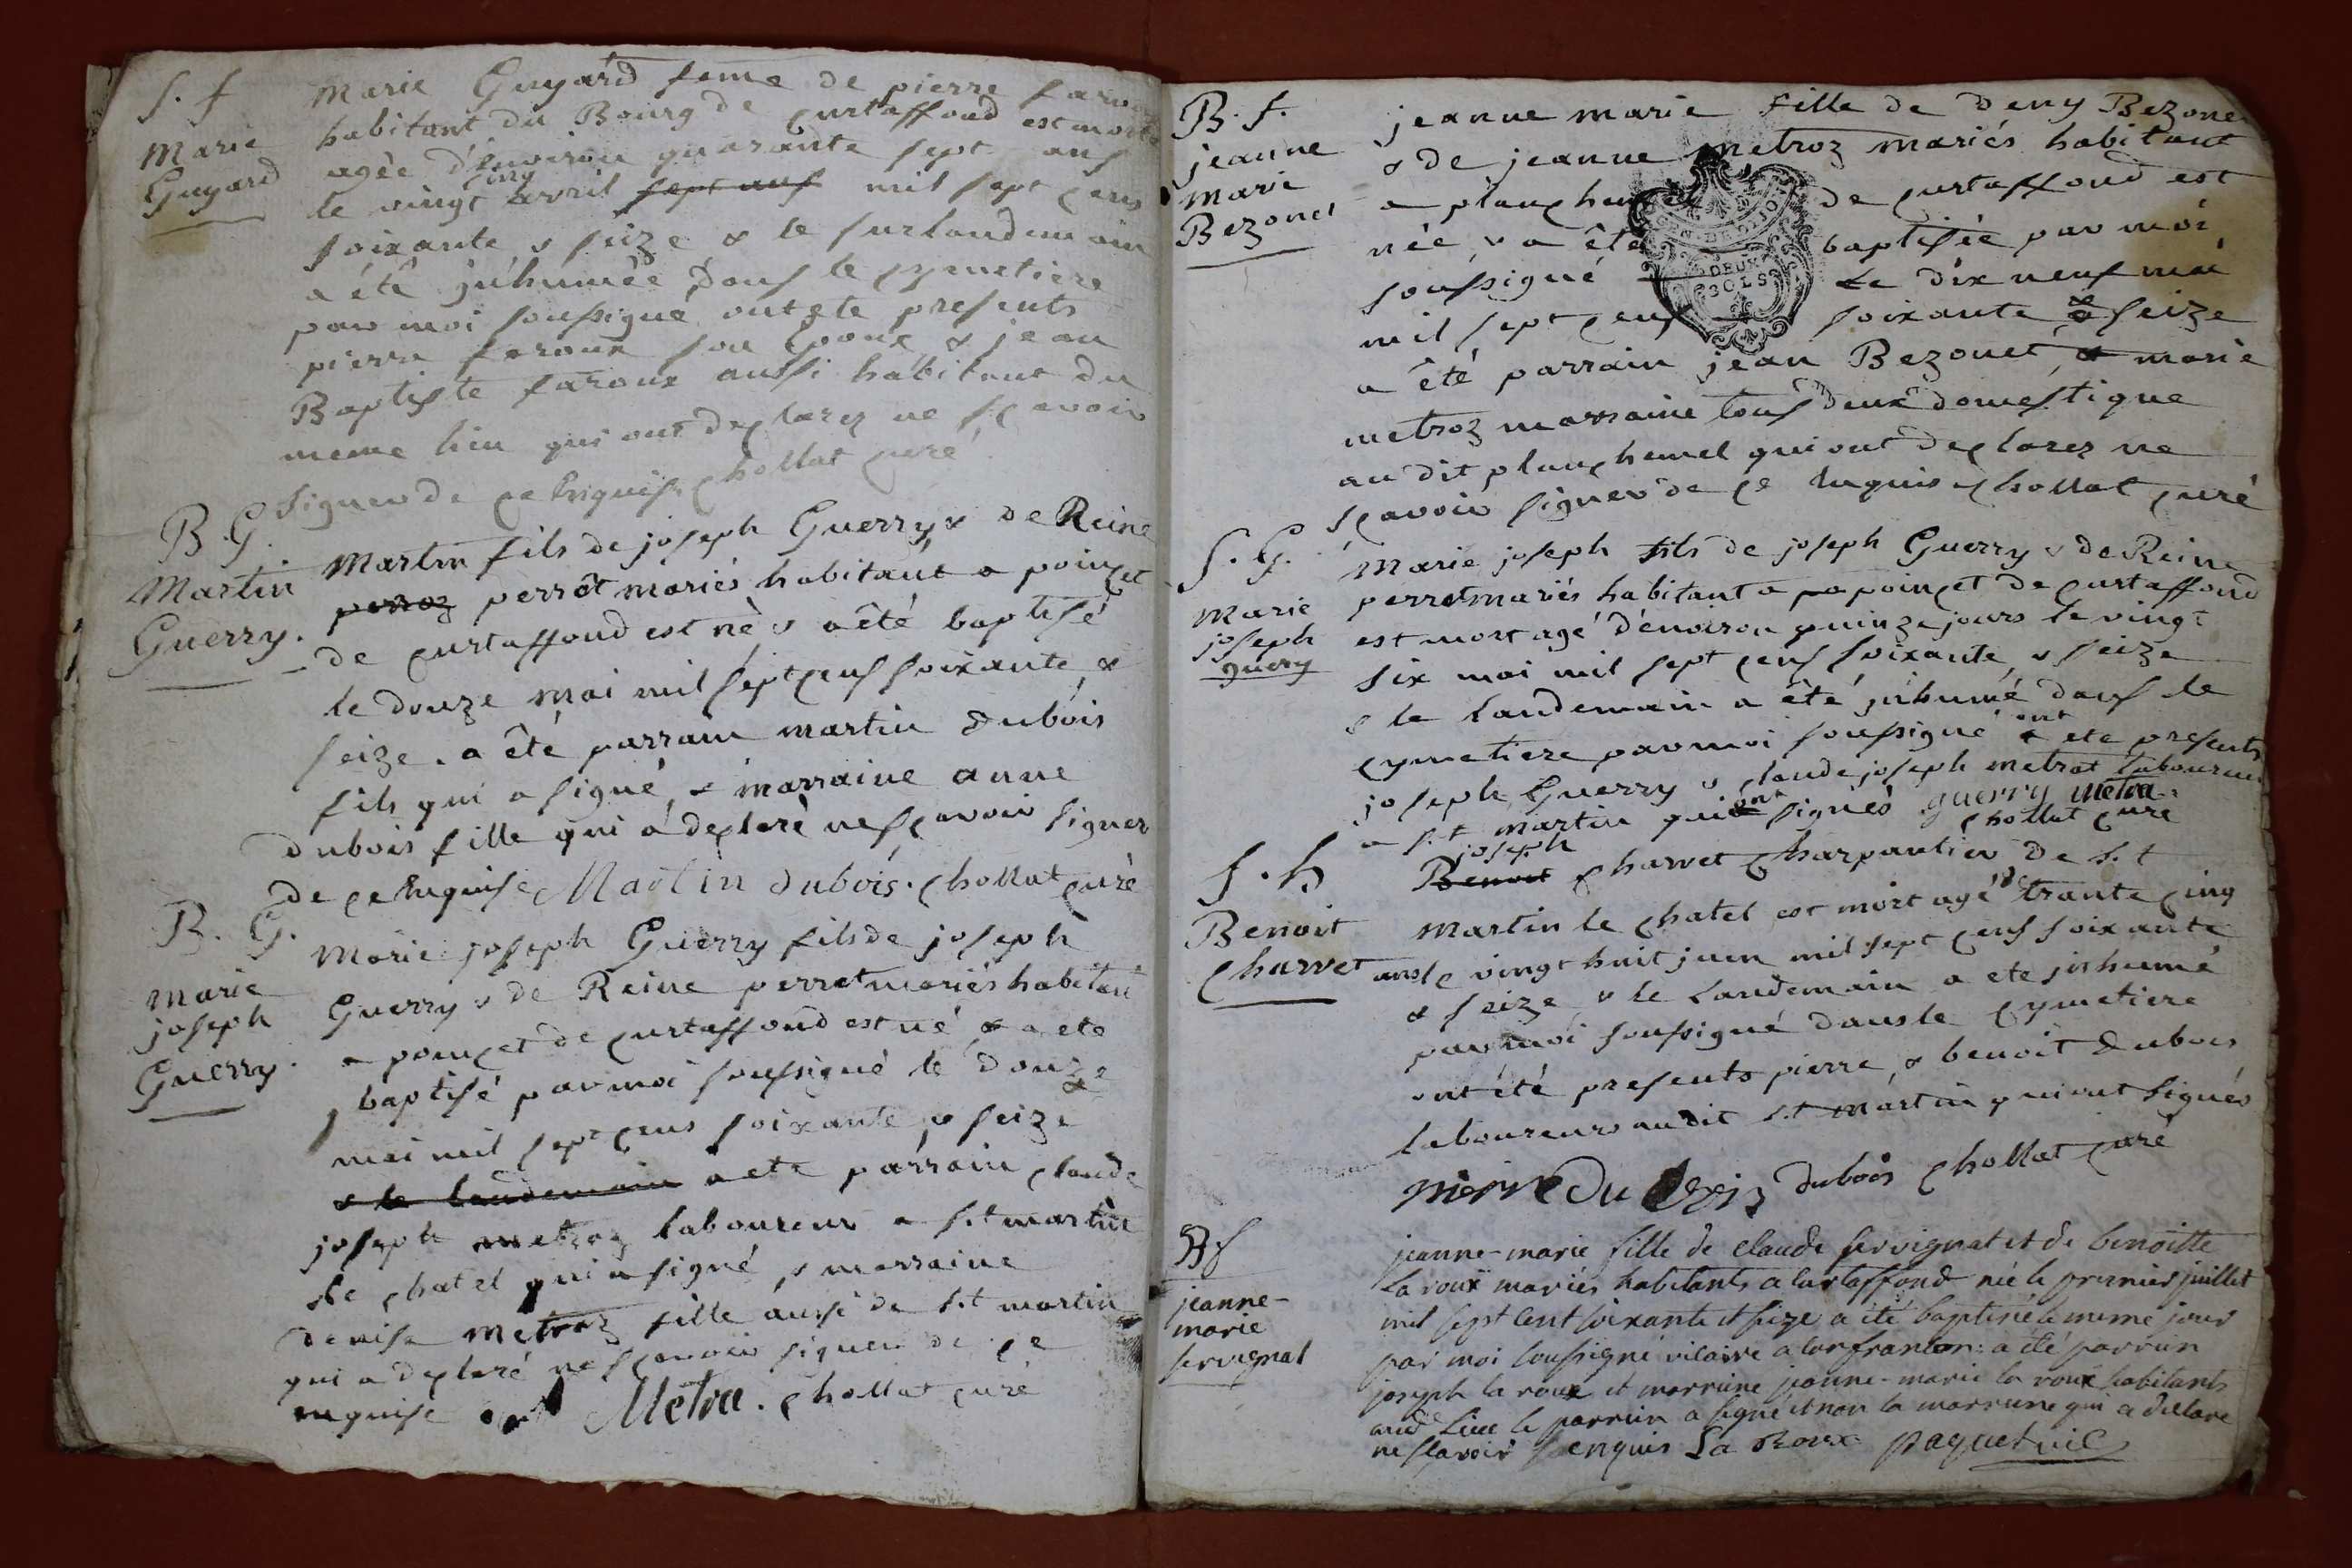 S. f
Marie
Guyard
Marie Guyard feme de pierre farou
habitant du Bourg de Curtaffond est morte
agèe d'environ quarante sept ans
le vingt cinq avril sept ans mil sept cens
soixante & seize & le surlandemain
a étê jnhumèe dans le cymetiere
par moi soussigné ont ete presents
pierre faroux son epoux & jean
Baptiste faroux aussi habitant du
meme lieu qui ont declarez ne scavoir
signer de ce Enquis chollat curé
B. G.
Martin
Guerry.
Martin fils de joseph Guerry & de Reine
perroz perrôt mariés habitant a poincet
de curtaffond est nè & a été baptisé
le douze mai mil sept cens soixante &
seize. a êté parrain martin dubois
fils qui a signé, & marraine anne
dubois fille qui a declarè ne scavoir signer
de ce Enquise Martin dubois. chollat curé
B. G.
marie
joseph
Guerry.
Marie joseph Guerry fils de joseph
Guerry & de Reine perrot mariés habitant
a poincet de curtaffond est né & a ete
baptisé par moi soussigné le douze
mai mil sept cens soixante & seize
& le landemain a ete parrain claude
joseph metroz laboureur a s.t martin
le chatel qui a signé, & marraine
denise metroz fille aussi de s.t martin
qui a declaré ne scavoir signer de ce
enquise Metra. chollat curé
B. f.
jeanne
marie
Bezonet
jeanne marie fille de deny Bezonet
& de jeanne metroz mariés habitant
a planchemel de curtaffond est
née, & a êtê baptisée par moi
soussigné le dix neuf mai
mil sept cens soixante & seize
a été parrain jean Bezonet, & marie
metroz marraine tous deux domestique
au dit planchemel qui ont declarez ne
scavoir signer de ce enquis chollat curé
S. G.
Marie
joseph
guerry
Marie joseph fils de joseph Guerry & de Reine
perrot mariés habitant a poincet de curtaffond
est mort agé d'environ quinze jours le vingt
six mai mil sept cens soixante, & seize
& le landemain a été jnhumé dans le
cymetiere par moi soussigné ont ete presents
joseph Guerry & claude joseph metrat laboureur
a s.t martin qui ont signés guerry metra
chollat curé
S. h
Benoit
charvet
Benoit joseph charvet charpantier de s.t
martin le chatel est mort agé de trante cinq
ans le vingt huit juin mil sept cens soixante
& seize & le landemain a ete jnhumé
par moi soussigné dans le cymetiere
ont été presents pierre, & benoit dubois
laboureurs audit s.t martin qui ont signés
pierre du bois dubois chollat curé
B f
jeanne-
marie
servignat
jeanne-marie fille de claude servignat et de benoitte
la roux mariés habitants a curtaffond née le premier juillet
mil sept cent soixante et seize a été baptisée le meme jour
par moi soussigné vicaire a confrancon: a été parrain
joseph la roux et marraine jeanne-marie la roux habitants
aud. lieu le parrain a signé et non la marraine qui a déclaré
ne scavoir enquis La Roux paquet vic